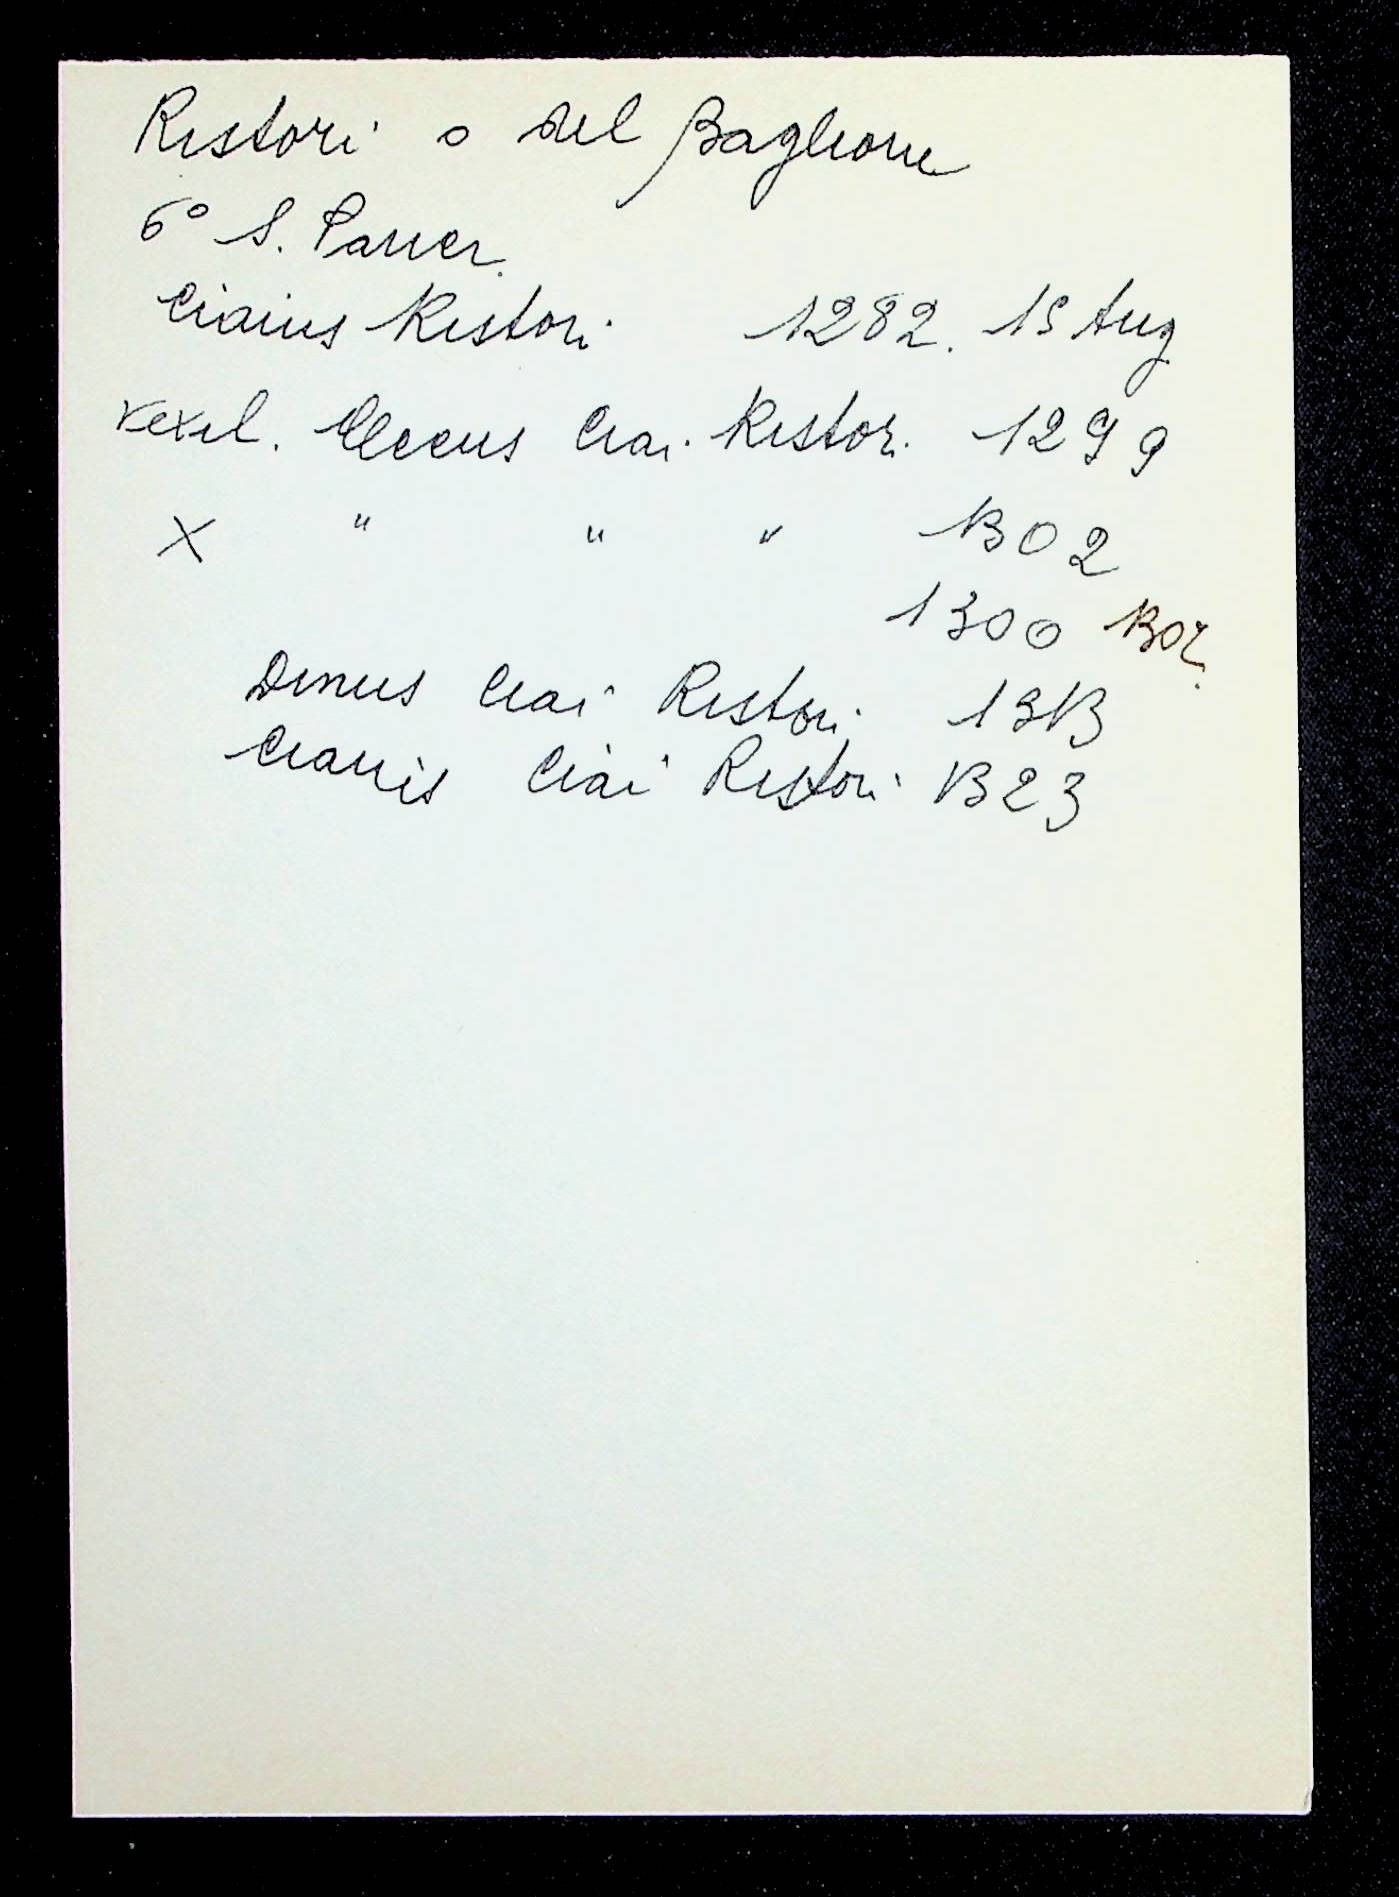 Ristori o del Baglione
6° S. Pancr.
Ciaius Ristori 1282. 15 Aug
vexil. Cleccus Ciai. Ristor. 1299
X " " " 1302
1300 1302.
Dinus Ciai Ristori 1313
Ciai Ristori 1323